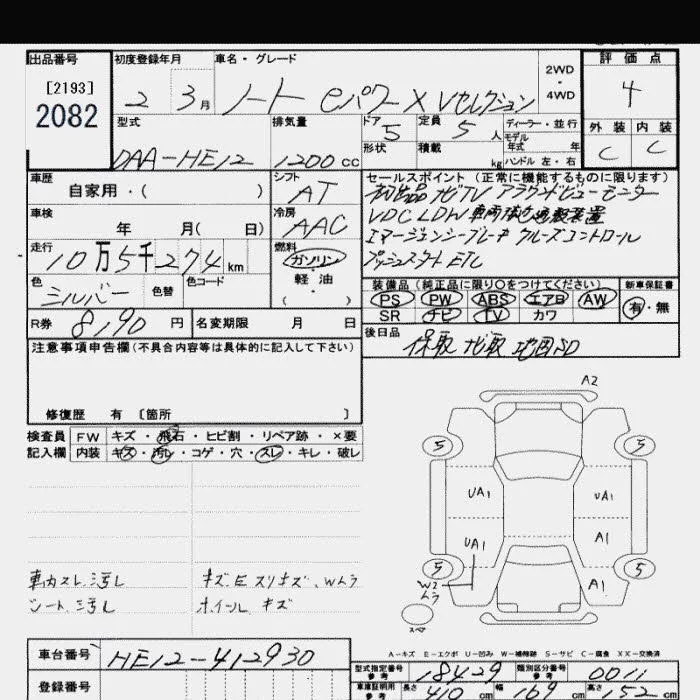 出品番号 初度登録年月 車名・グレード 評価点
[2193]
2082
2 3月 ノート eパワー X Vセレクション 2WD・4WD 4
型式 排気量 ドア 5 定員 5人 ディーラー・並行 外装 内装
DAA-HE12 1200cc 形状 積載 kg モデル年式 年 ハンドル 左・右 C C
車歴 シフト セールスポイント(正常に機能するものに限ります)
自家用・( ) AT ナビTV アラウンドビューモニター
車検 冷房 VDC LDW 車両接近通報装置
年 月( 日) AAC エマージェンシーブレーキ クルーズコントロール
走行 燃料 プッシュスタート ETC
10万5千274km ガソリン
色 色替 色コード 軽油 装備品(純正品に限り○をつけてください) 新車保証書
シルバー ( ) PS PW ABS エアB AW 有・無
SR ナビ TV カワ
R券 8190円 名変期限 月 日 後日品
保取 ナビ取 地図SD
注意事項申告欄(不具合内容等は具体的に記入して下さい)
修復歴 有 〔箇所 〕
検査員 FW キズ・飛石・ヒビ割・リペア跡・×要
記入欄 内装 キズ・汚レ・コゲ・穴・スレ・キレ・破レ
A2
5 5
UA1 UA1
UA1 A1
5 5
W2 A1
トラ
スペア
車内スレ、汚レ
シート、汚レ
キズ、E スリキズ、Wムラ
ホイール キズ
A-キズ E-エクボ U-凹み W-補修跡 S-サビ C-腐食 XX-交換済
車台番号 HE12-412930 型式指定番号 参考 18429 類別区分番号 参考 0011
登録番号 車庫証明用 参考 長さ 410cm 幅 169cm 高さ 152cm